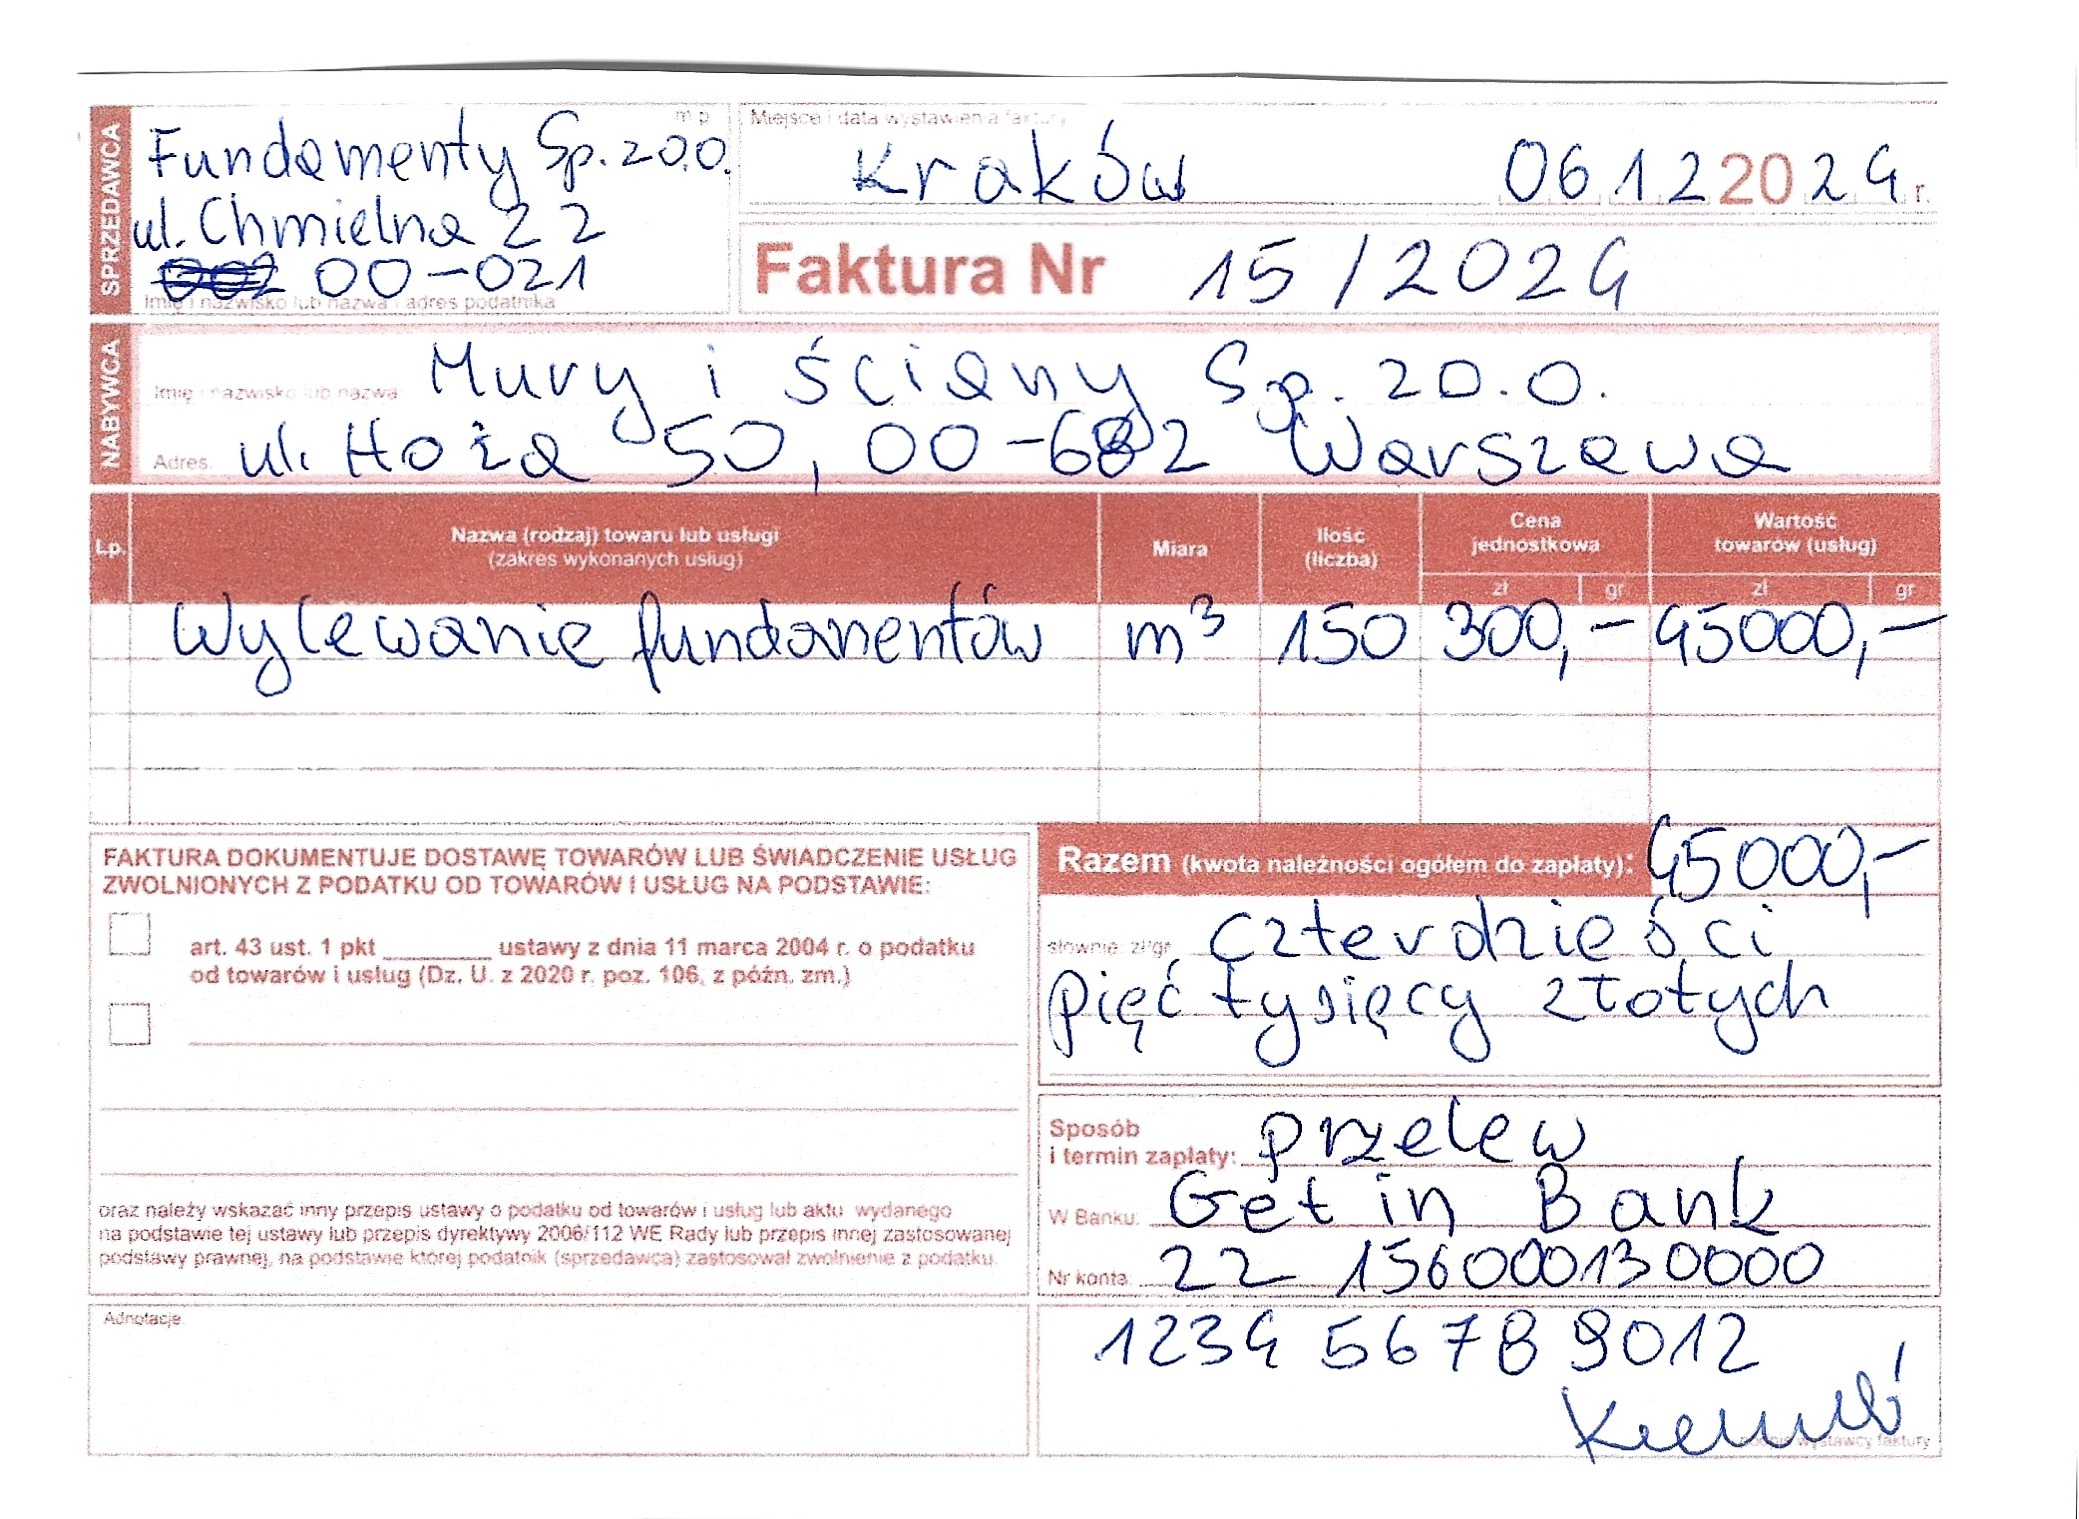 SPRZEDAWCA
m.p.
Fundamenty Sp. z o.o.
ul. Chmielna 22
00-021
Imię i nazwisko lub nazwa i adres podatnika
Miejsce i data wystawienia faktury
Kraków 06 12 2024 r.
Faktura Nr 15/2024
NABYWCA
Imię i nazwisko lub nazwa Mury i ściany Sp. z o.o.
Adres ul. Hoża 50, 00-682 Warszawa
Lp. Nazwa (rodzaj) towaru lub usługi (zakres wykonanych usług) Miara Ilość (liczba) Cena jednostkowa zł gr Wartość towarów (usług) zł gr
Wylewanie fundamentów m³ 150 300,- 45000,-
FAKTURA DOKUMENTUJE DOSTAWĘ TOWARÓW LUB ŚWIADCZENIE USŁUG
ZWOLNIONYCH Z PODATKU OD TOWARÓW I USŁUG NA PODSTAWIE:
art. 43 ust. 1 pkt ________ ustawy z dnia 11 marca 2004 r. o podatku
od towarów i usług (Dz. U. z 2020 r. poz. 106, z późn. zm.)
oraz należy wskazać inny przepis ustawy o podatku od towarów i usług lub aktu wydanego
na podstawie tej ustawy lub przepis dyrektywy 2006/112 WE Rady lub przepis innej zastosowanej
podstawy prawnej, na podstawie której podatnik (sprzedawca) zastosował zwolnienie z podatku.
Adnotacje
Razem (kwota należności ogółem do zapłaty): 45000,-
słownie: zł/gr czterdzieści
pięć tysięcy złotych
Sposób
i termin zapłaty: przelew
W Banku: Get in Bank
Nr konta 22 156000130000
1234 5678 9012
podpis wystawcy faktury